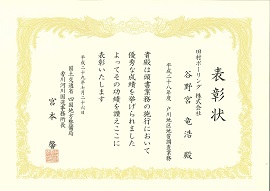 表彰状
田村ボーリング株式会社
谷野宮 竜浩 殿
平成二八年度 戸川地区地質調査業務
貴殿は頭書業務の施行において
優秀な成績を挙げられました
よってその功績を讃えここに
表彰いたします
平成二十九年七月二十六日
国土交通省 四国地方整備局
香川河川国道事務所長
宮本 馨